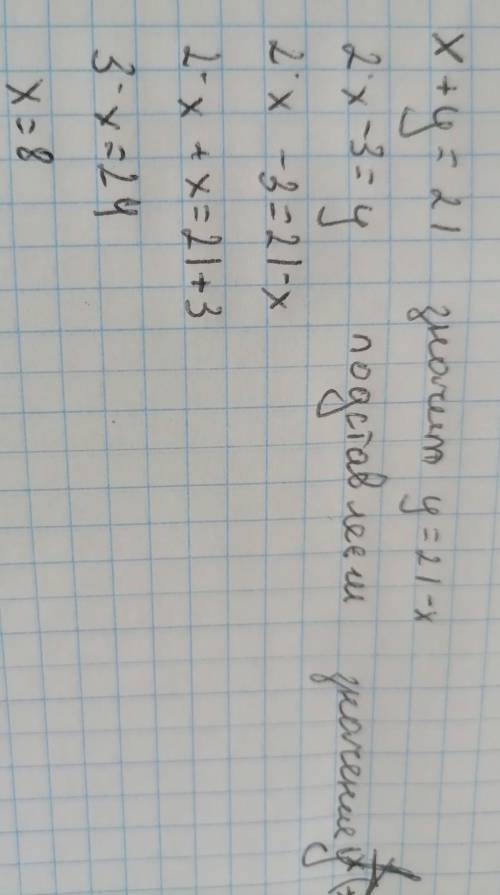 x + y = 21 значит y = 21 - x
2·x - 3 = y подставляем значение y
2·x - 3 = 21 - x
2·x + x = 21 + 3
3·x = 24
x = 8